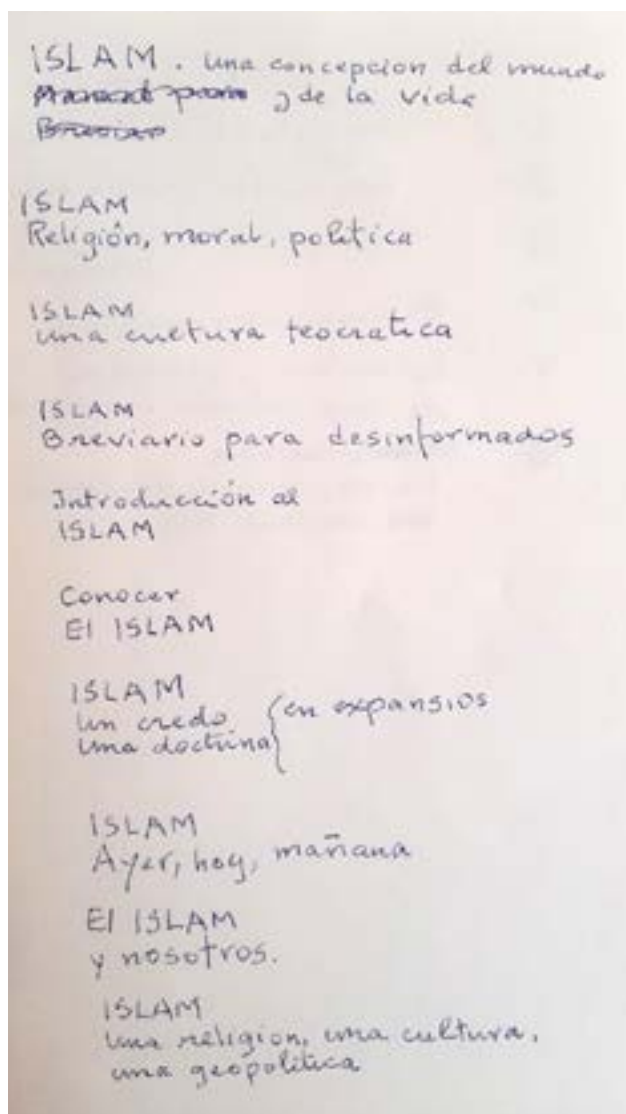 ISLAM. una concepcion del mundo
y de la vida
ISLAM
Religión, moral, politica
ISLAM
una cultura teocratica
ISLAM
Breviario para desinformados
Introducción al
ISLAM
Conocer
El ISLAM
ISLAM
un credo
una doctrina } en expansios
ISLAM
Ayer, hoy, mañana
El ISLAM
y nosotros.
ISLAM
una religion, una cultura,
una geopolitica